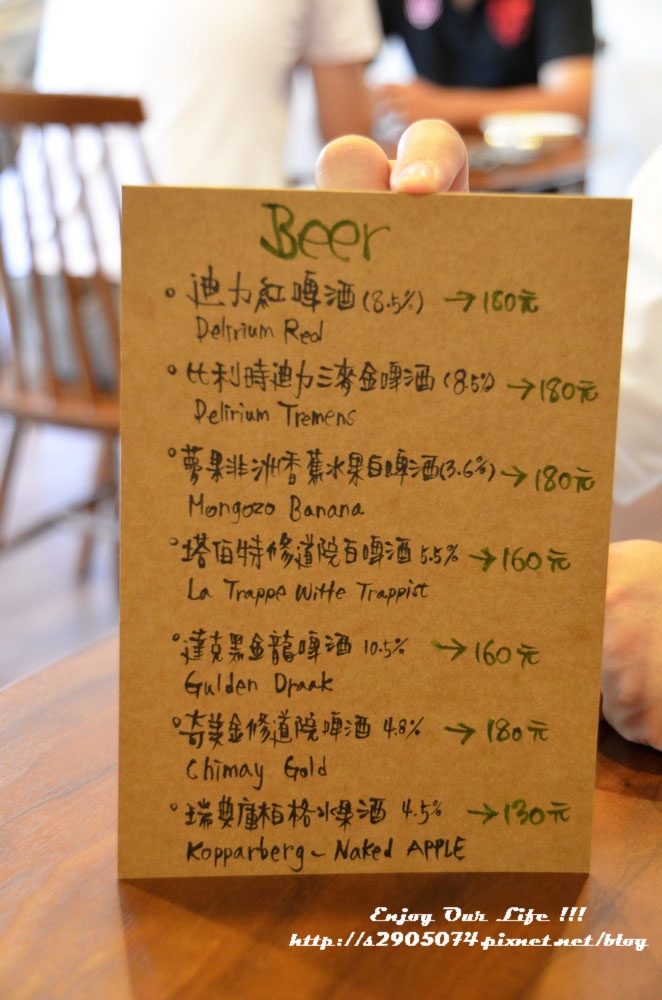 Beer
迪力紅啤酒(8.5%) → 180元
Delirium Red
比利時迪力三麥金啤酒(8.5%) → 180元
Delirium Tremens
夢果非洲香蕉水果白啤酒(3.6%) → 180元
Mongozo Banana
塔伯特修道院白啤酒 5.5% → 160元
La Trappe Witte Trappist
達克黑金龍啤酒 10.5% → 160元
Gulden Draak
奇美金修道院啤酒 4.8% → 180元
Chimay Gold
瑞典廬柏格水果酒 4.5% → 130元
Kopparberg - Naked APPLE
Enjoy Our Life !!!
http://s2905074.pixnet.net/blog